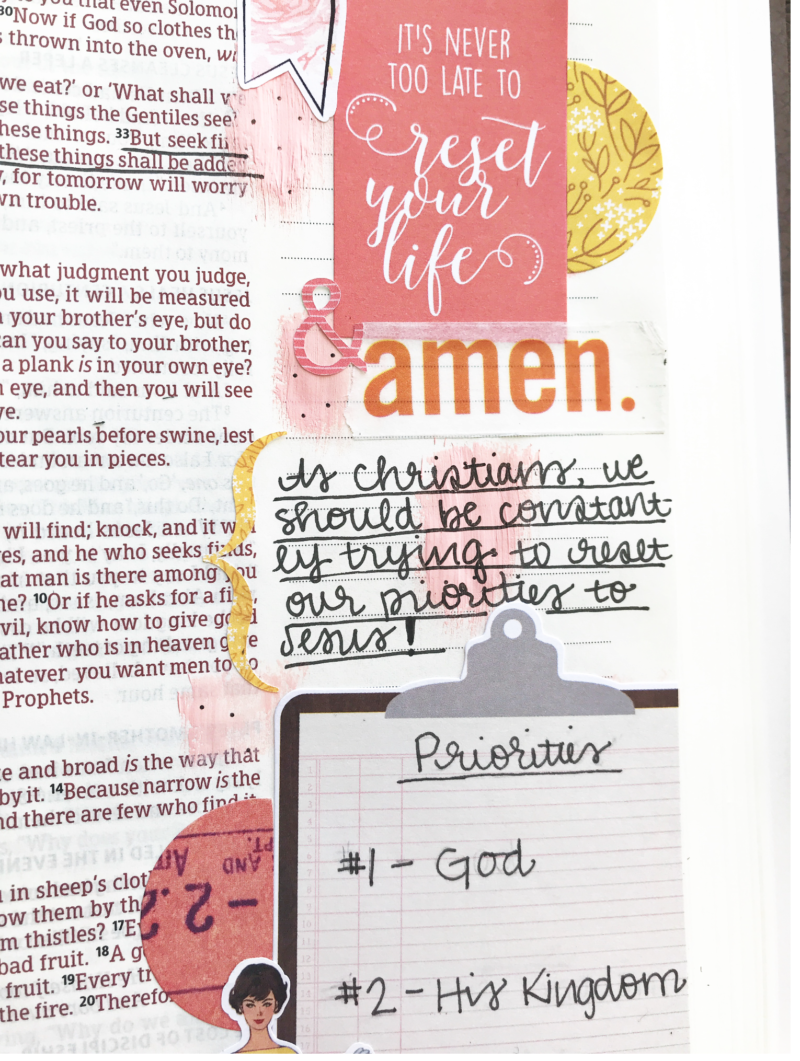 that even Solomon
30Now if God so clothes th
thrown into the oven,
we eat?' or 'What shall we
se things the Gentiles see
hese things. 33But seek fi
these things shall be adde
, for tomorrow will worry
wn trouble.
what judgment you judge,
ou use, it will be measured
your brother's eye, but do
can you say to your brother,
a plank is in your own eye?
n eye, and then you will see
ye.
our pearls before swine, lest
tear you in pieces.
will find; knock, and it w
es, and he who seeks finds,
at man is there among you
ne? 10Or if he asks for a fi
vil, know how to give good
ather who is in heaven give
hatever you want men to do
Prophets.
e and broad is the way that
by it. 14Because narrow is the
nd there are few who find it.
in sheep's clot
ow them by th
m thistles? 17E
bad fruit. 18A g
fruit. 19Every tr
the fire. 20Therefo
IT'S NEVER
TOO LATE TO
reset
your
life
&
amen.
As christians, we
should be constant-
ly trying to reset
our priorities to
Jesus!
Priorities
#1 - God
#2 - His Kingdom
AND
- 2.